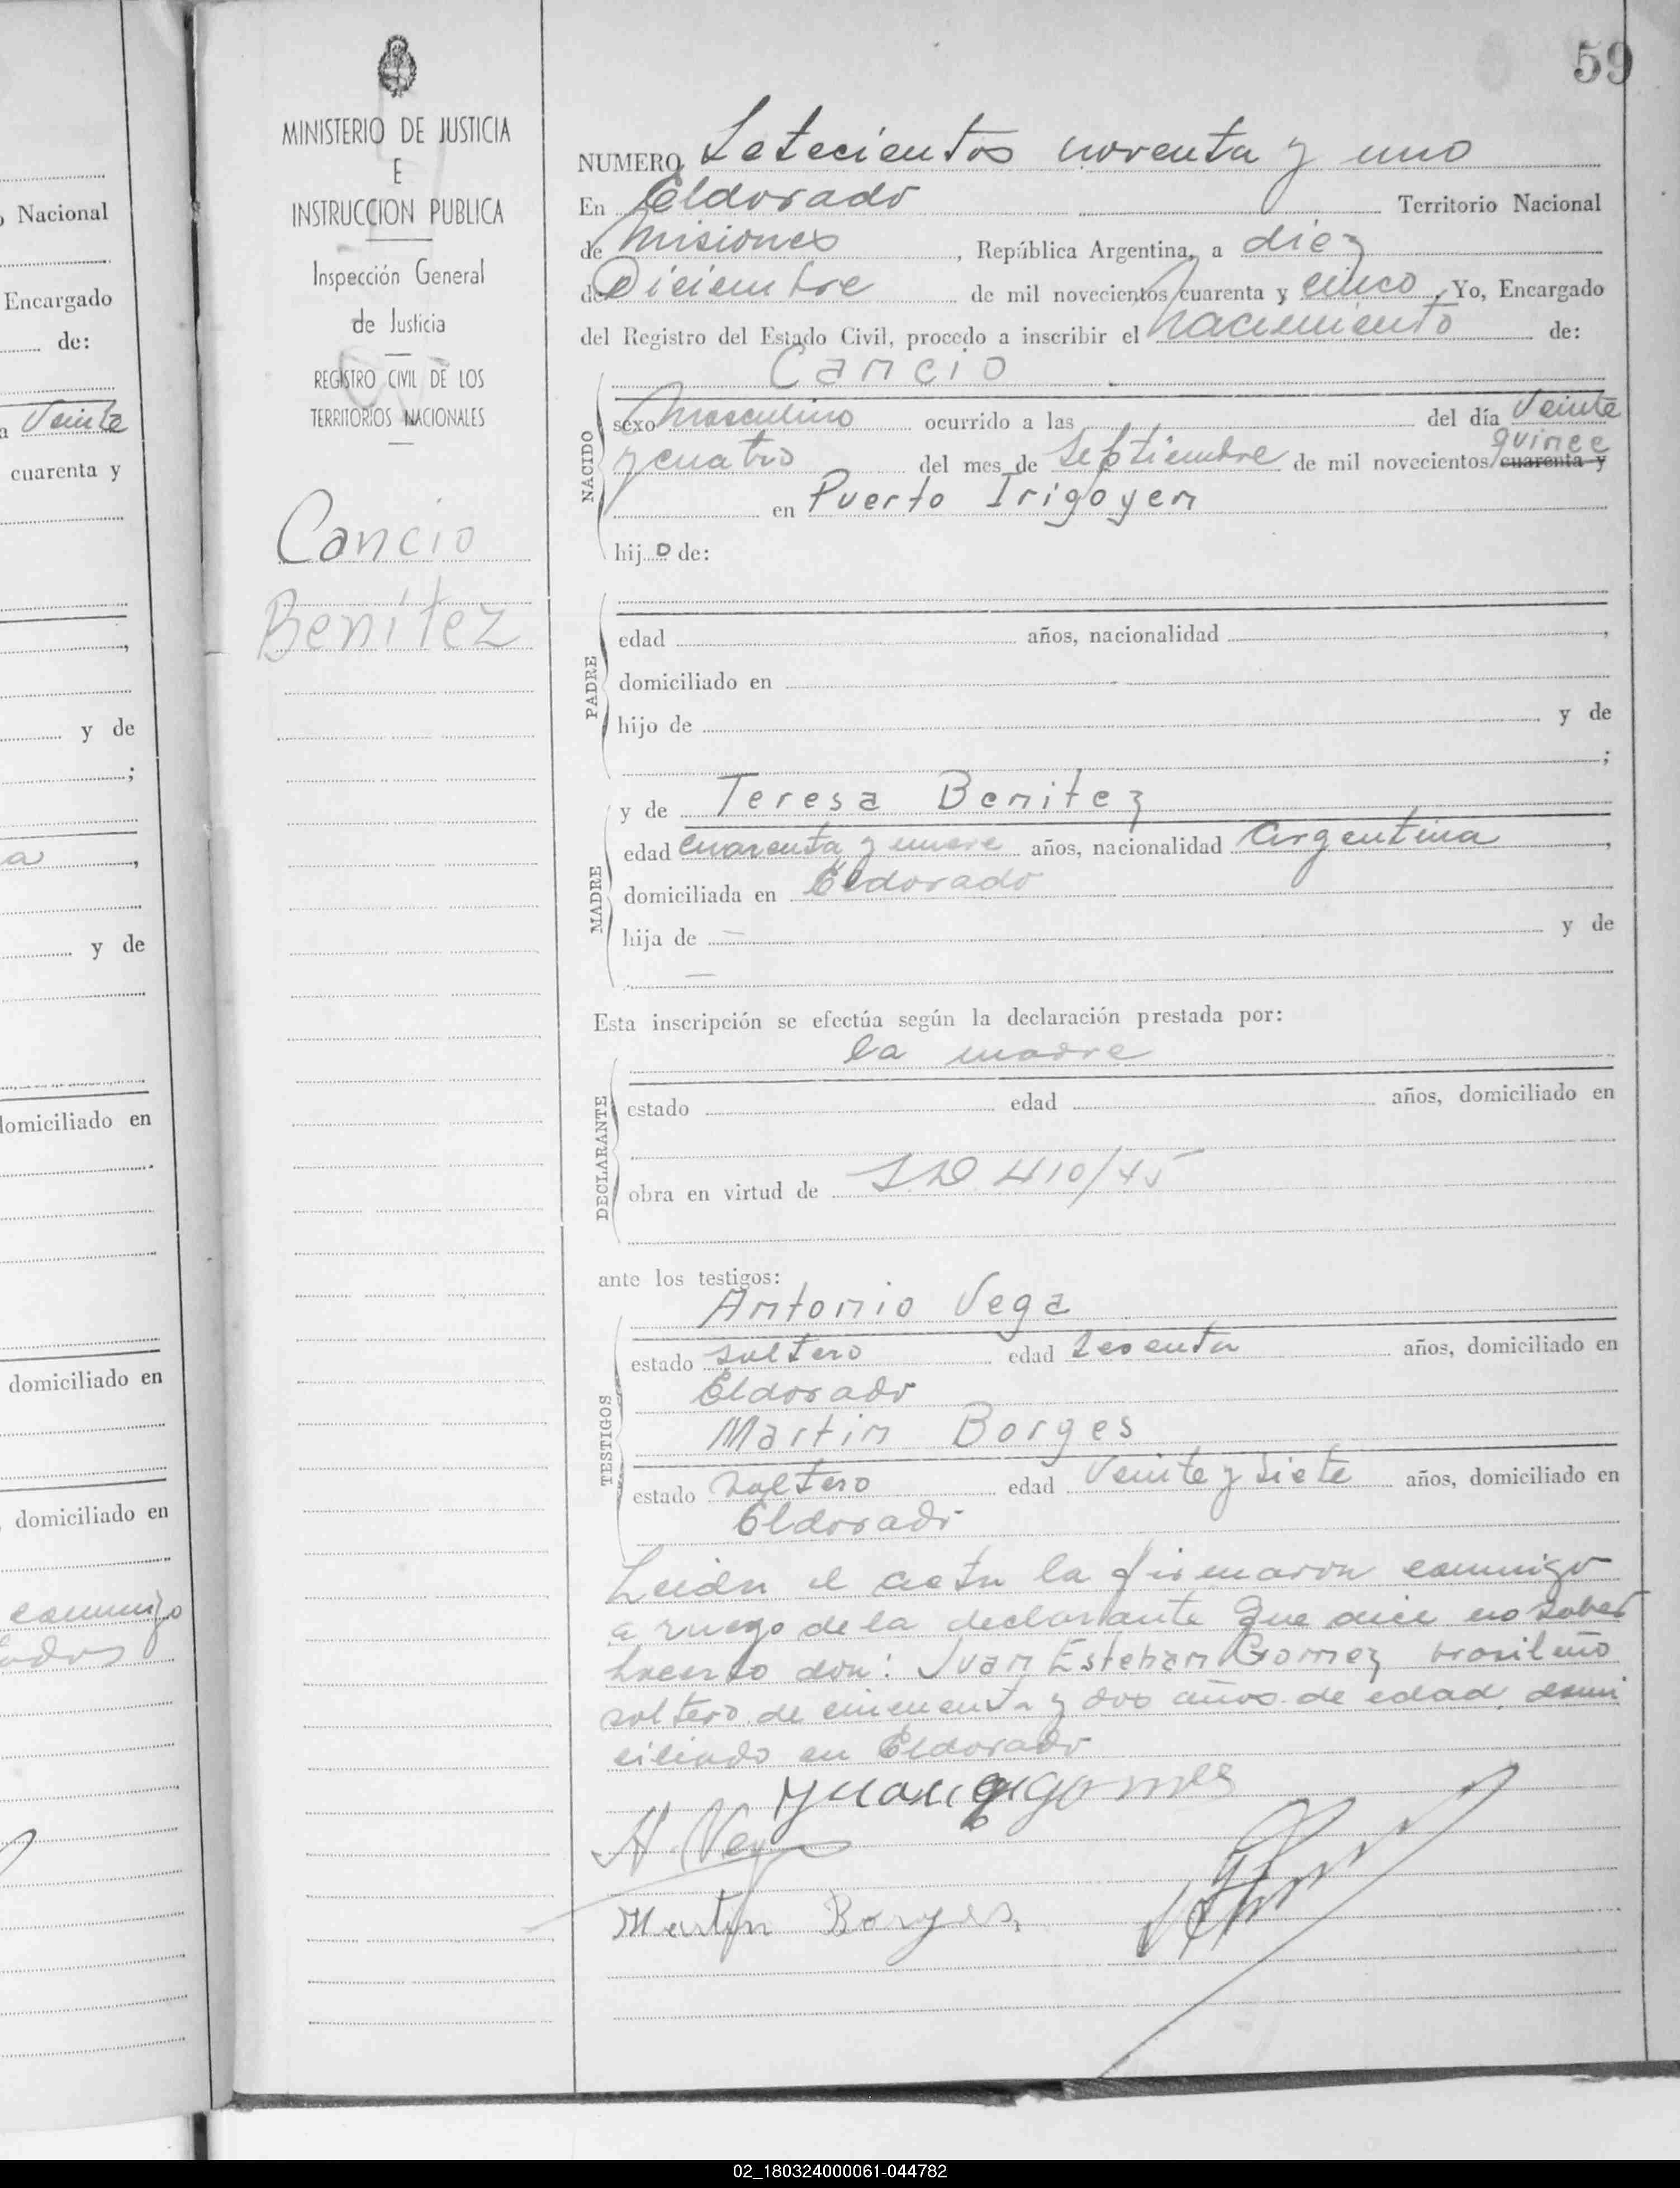 Nacional
Encargado
de:
Veinte
cuarenta y
y de
;
a
y de
domiciliado en
domiciliado en
domiciliado en
conmigo
MINISTERIO DE JUSTICIA
E
INSTRUCCION PUBLICA
Inspección General
de Justicia
REGISTRO CIVIL DE LOS
TERRITORIOS NACIONALES
Cancio
Benítez
59
NUMERO Setecientos noventa y uno
En Eldorado Territorio Nacional
de Misiones, República Argentina, a diez
de Diciembre de mil novecientos cuarenta y cinco, Yo, Encargado
del Registro del Estado Civil, procedo a inscribir el nacimiento de:
Cancio
NACIDO
sexo masculino ocurrido a las del día Veinte
quince
y cuatro del mes de Septiembre de mil novecientos cuarenta y
en Puerto Irigoyen
hijo de:
PADRE
edad años, nacionalidad ,
domiciliado en
hijo de y de
;
y de Teresa Benitez
MADRE
edad cuarenta y nueve años, nacionalidad Argentina,
domiciliada en Eldorado
hija de — y de
—
Esta inscripción se efectúa según la declaración prestada por:
la madre
DECLARANTE
estado edad años, domiciliado en
obra en virtud de 410/45
ante los testigos:
Antonio Vega
TESTIGOS
estado soltero edad sesenta años, domiciliado en
Eldorado
Martin Borges
estado soltero edad Veinte y siete años, domiciliado en
Eldorado
Leida el acta la firmaron conmigo
a ruego de la declarante que dice no saber
hacerlo don: Juan Esteban Gomez brasileño
soltero de cincuenta y dos años de edad, domi
ciliado en Eldorado
A. Vega
Martin Borges
02_180324000061-044782